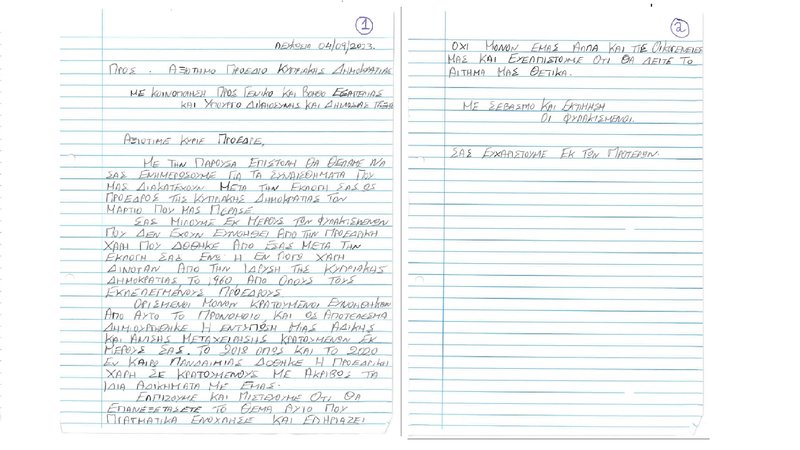 1
ΛΕΥΚΩΣΙΑ 04/09/2023.
ΠΡΟΣ. ΑΞΙΟΤΙΜΟ ΠΡΟΕΔΡΟ ΚΥΠΡΙΑΚΗΣ ΔΗΜΟΚΡΑΤΙΑΣ
ΜΕ ΚΟΙΝΟΠΟΙΗΣΗ ΠΡΟΣ ΓΕΝΙΚΟ ΚΑΙ ΒΟΗΘΟ ΕΙΣΑΓΓΕΛΕΑΣ
ΚΑΙ ΥΠΟΥΡΓΟ ΔΙΚΑΙΟΣΥΝΗΣ ΚΑΙ ΔΗΜΟΣΙΑΣ ΤΑΞΕΩΣ
ΑΞΙΟΤΙΜΕ ΚΥΡΙΕ ΠΡΟΕΔΡΕ,
ΜΕ ΤΗΝ ΠΑΡΟΥΣΑ ΕΠΙΣΤΟΛΗ ΘΑ ΘΕΛΑΜΕ ΝΑ
ΣΑΣ ΕΝΗΜΕΡΩΣΟΥΜΕ ΓΙΑ ΤΑ ΣΥΝΑΙΣΘΗΜΑΤΑ ΠΟΥ
ΜΑΣ ΔΙΑΚΑΤΕΧΟΥΝ ΜΕΤΑ ΤΗΝ ΕΚΛΟΓΗ ΣΑΣ ΩΣ
ΠΡΟΕΔΡΟΣ ΤΗΣ ΚΥΠΡΙΑΚΗΣ ΔΗΜΟΚΡΑΤΙΑΣ ΤΟΝ
ΜΑΡΤΙΟ ΠΟΥ ΜΑΣ ΠΕΡΑΣΕ
ΣΑΣ ΜΙΛΟΥΜΕ ΕΚ ΜΕΡΟΥΣ ΤΩΝ ΦΥΛΑΚΙΣΜΕΝΩΝ
ΠΟΥ ΔΕΝ ΕΧΟΥΝ ΕΥΝΟΗΘΕΙ ΑΠΟ ΤΗΝ ΠΡΟΕΔΡΙΚΗ
ΧΑΡΗ ΠΟΥ ΔΟΘΗΚΕ ΑΠΟ ΕΣΑΣ ΜΕΤΑ ΤΗΝ
ΕΚΛΟΓΗ ΣΑΣ. ΕΝΩ Η ΕΝ ΛΟΓΩ ΧΑΡΗ
ΔΙΝΟΤΑΝ ΑΠΟ ΤΗΝ ΙΔΡΥΣΗ ΤΗΣ ΚΥΠΡΙΑΚΗΣ
ΔΗΜΟΚΡΑΤΙΑΣ ΤΟ 1960 ΑΠΟ ΟΛΟΥΣ ΤΟΥΣ
ΕΚΛΕΛΕΓΜΕΝΟΥΣ ΠΡΟΕΔΡΟΥΣ.
ΟΡΙΣΜΕΝΟΙ ΜΟΝΟΝ ΚΡΑΤΟΥΜΕΝΟΙ ΕΥΝΟΗΘΗΚΑΝ
ΑΠΟ ΑΥΤΟ ΤΟ ΠΡΟΝΟΜΟΙΟ, ΚΑΙ ΩΣ ΑΠΟΤΕΛΕΣΜΑ
ΔΗΜΙΟΥΡΓΗΘΗΚΕ Η ΕΝΤΥΠΩΣΗ ΜΙΑΣ ΑΔΙΚΗΣ
ΚΑΙ ΑΝΙΣΗΣ ΜΕΤΑΧΕΙΡΗΣΗΣ ΚΡΑΤΟΥΜΕΝΩΝ ΕΚ
ΜΕΡΟΥΣ ΣΑΣ. ΤΟ 2018 ΟΠΩΣ ΚΑΙ ΤΟ 2020
ΕΝ ΚΑΙΡΩ ΠΑΝΔΗΜΙΑΣ ΔΟΘΗΚΕ Η ΠΡΟΕΔΡΙΚΗ
ΧΑΡΗ ΣΕ ΚΡΑΤΟΥΜΕΝΟΥΣ ΜΕ ΑΚΡΙΒΩΣ ΤΑ
ΙΔΙΑ ΑΔΙΚΗΜΑΤΑ ΜΕ ΕΜΑΣ.
ΕΛΠΙΖΟΥΜΕ ΚΑΙ ΠΙΣΤΕΥΟΥΜΕ ΟΤΙ ΘΑ
ΕΠΑΝΕΞΕΤΑΣΕΤΕ ΤΟ ΘΕΜΑ ΑΥΤΟ ΠΟΥ
ΠΡΑΓΜΑΤΙΚΑ ΕΝΟΧΛΗΣΕ ΚΑΙ ΕΠΗΡΕΑΖΕΙ
2
ΟΧΙ ΜΟΝΟΝ ΕΜΑΣ ΑΛΛΑ ΚΑΙ ΤΙΣ ΟΙΚΟΓΕΝΕΙΕΣ
ΜΑΣ ΚΑΙ ΕΥΕΛΠΙΣΤΟΥΜΕ ΟΤΙ ΘΑ ΔΕΙΤΕ ΤΟ
ΑΙΤΗΜΑ ΜΑΣ ΘΕΤΙΚΑ.
ΜΕ ΣΕΒΑΣΜΟ ΚΑΙ ΕΚΤΙΜΗΣΗ
ΟΙ ΦΥΛΑΚΙΣΜΕΝΟΙ.
ΣΑΣ ΕΥΧΑΡΙΣΤΟΥΜΕ ΕΚ ΤΩΝ ΠΡΟΤΕΡΩΝ.